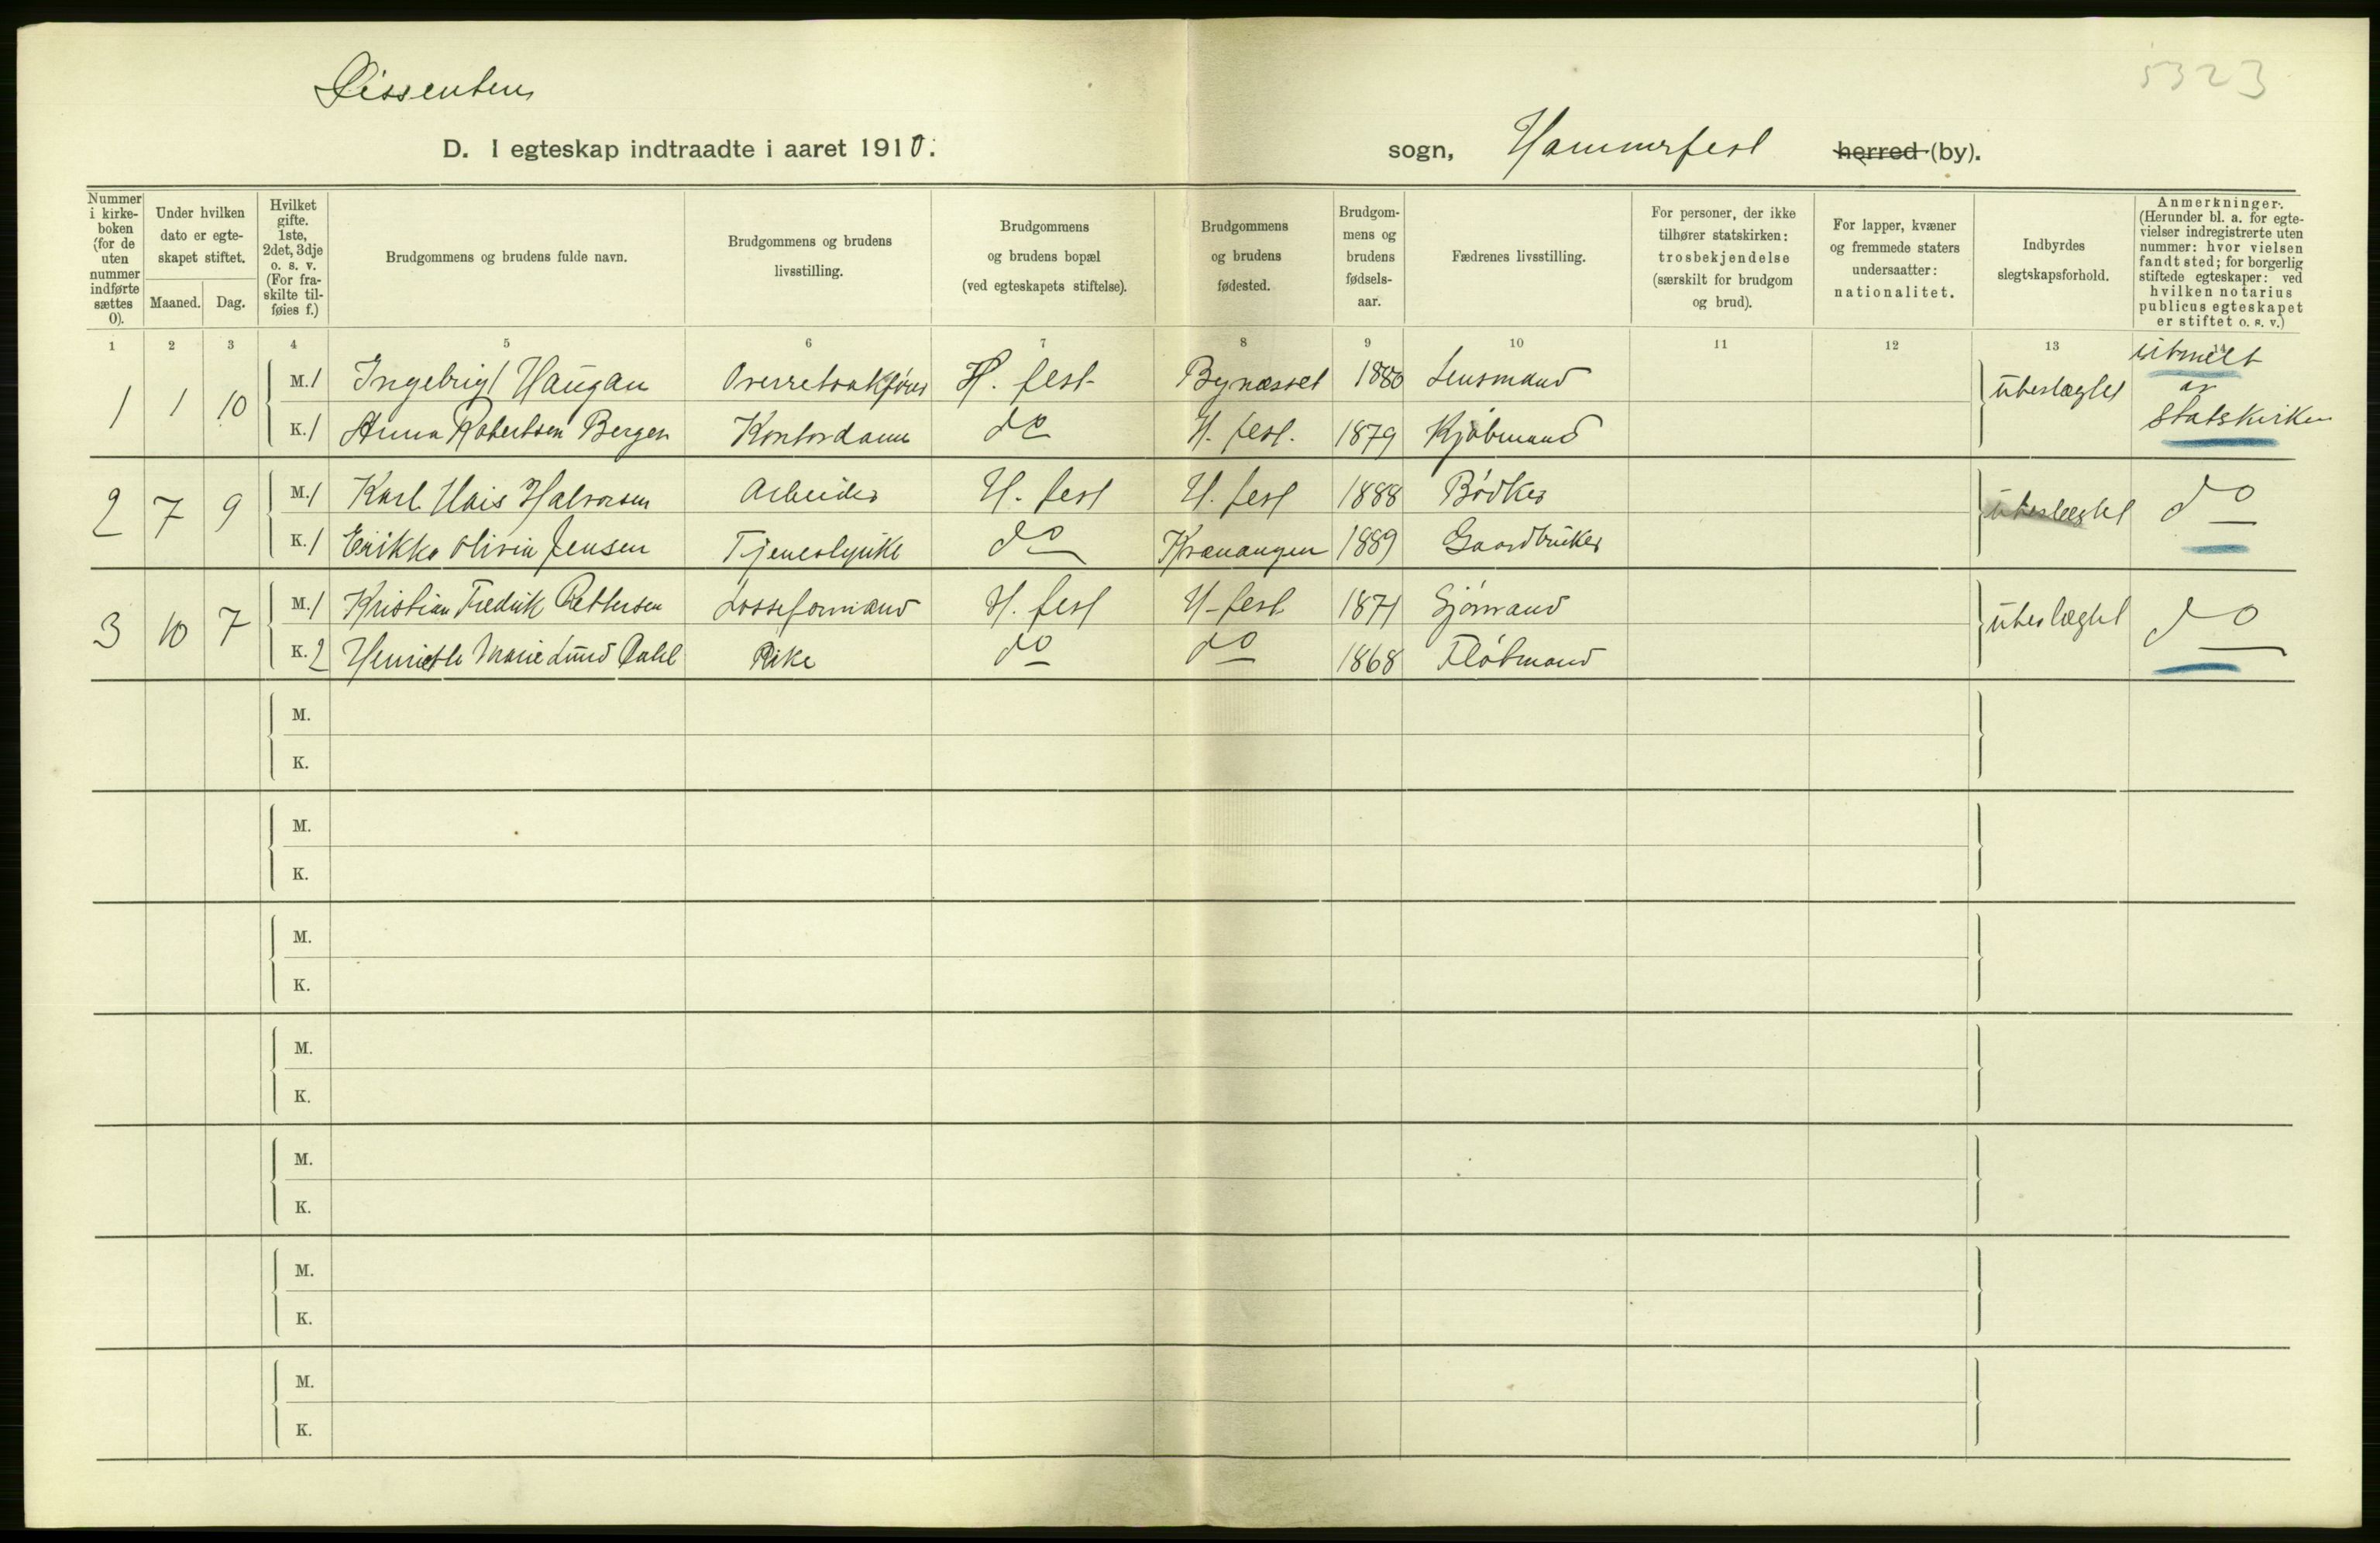 Dissentere
5323
D. I egteskap indtraadte i aaret 1910.
sogn, Hammerfest herred (by).
Nummer i kirkeboken (for de uten nummer indførte sættes 0).
Under hvilken dato er egteskapet stiftet.
Maaned. Dag.
Hvilket gifte. 1ste, 2det, 3dje o. s. v. (For fraskilte tilføies f.)
Brudgommens og brudens fulde navn.
Brudgommens og brudens livsstilling.
Brudgommens og brudens bopæl (ved egteskapets stiftelse).
Brudgommens og brudens fødested.
Brudgommens og brudens fødselsaar.
Fædrenes livsstilling.
For personer, der ikke tilhører statskirken: trosbekjendelse (særskilt for brudgom og brud).
For lapper, kvæner og fremmede staters undersaatter: nationalitet.
Indbyrdes slegtskapsforhold.
Anmerkninger. (Herunder bl. a. for egtevielser indregistrerte uten nummer: hvor vielsen fandt sted; for borgerlig stiftede egteskaper: ved hvilken notarius publicus egteskapet er stiftet o. s. v.)
1 2 3 4 5 6 7 8 9 10 11 12 13 14
1 1 10 M. 1 Ingebrigt Haugan Overretssakfører H. fest Bynæsset 1880 Lensmand ubeslægtet utmelt av Statskirken
K. 1 Anna Robertsen Berger Kontordame do H. fest. 1879 Kjøbmand
2 7 9 M. 1 Karl Hais Halvorsen Arbeider H. fest H. fest 1888 Bødker ubeslægtet do
K. 1 Erikka Olivia Jensen Tjenestepike do Kvænangen 1889 Gaardbruker
3 10 7 M. 1 Kristian Fredrik Pettersen Losseformand H. fest H-fest 1871 Sjømand ubeslægtet do
K. 2 Henriette Marie Lund Dahl Pike do do 1868 Fløtmand
M.
K.
M.
K.
M.
K.
M.
K.
M.
K.
M.
K.
M.
K.